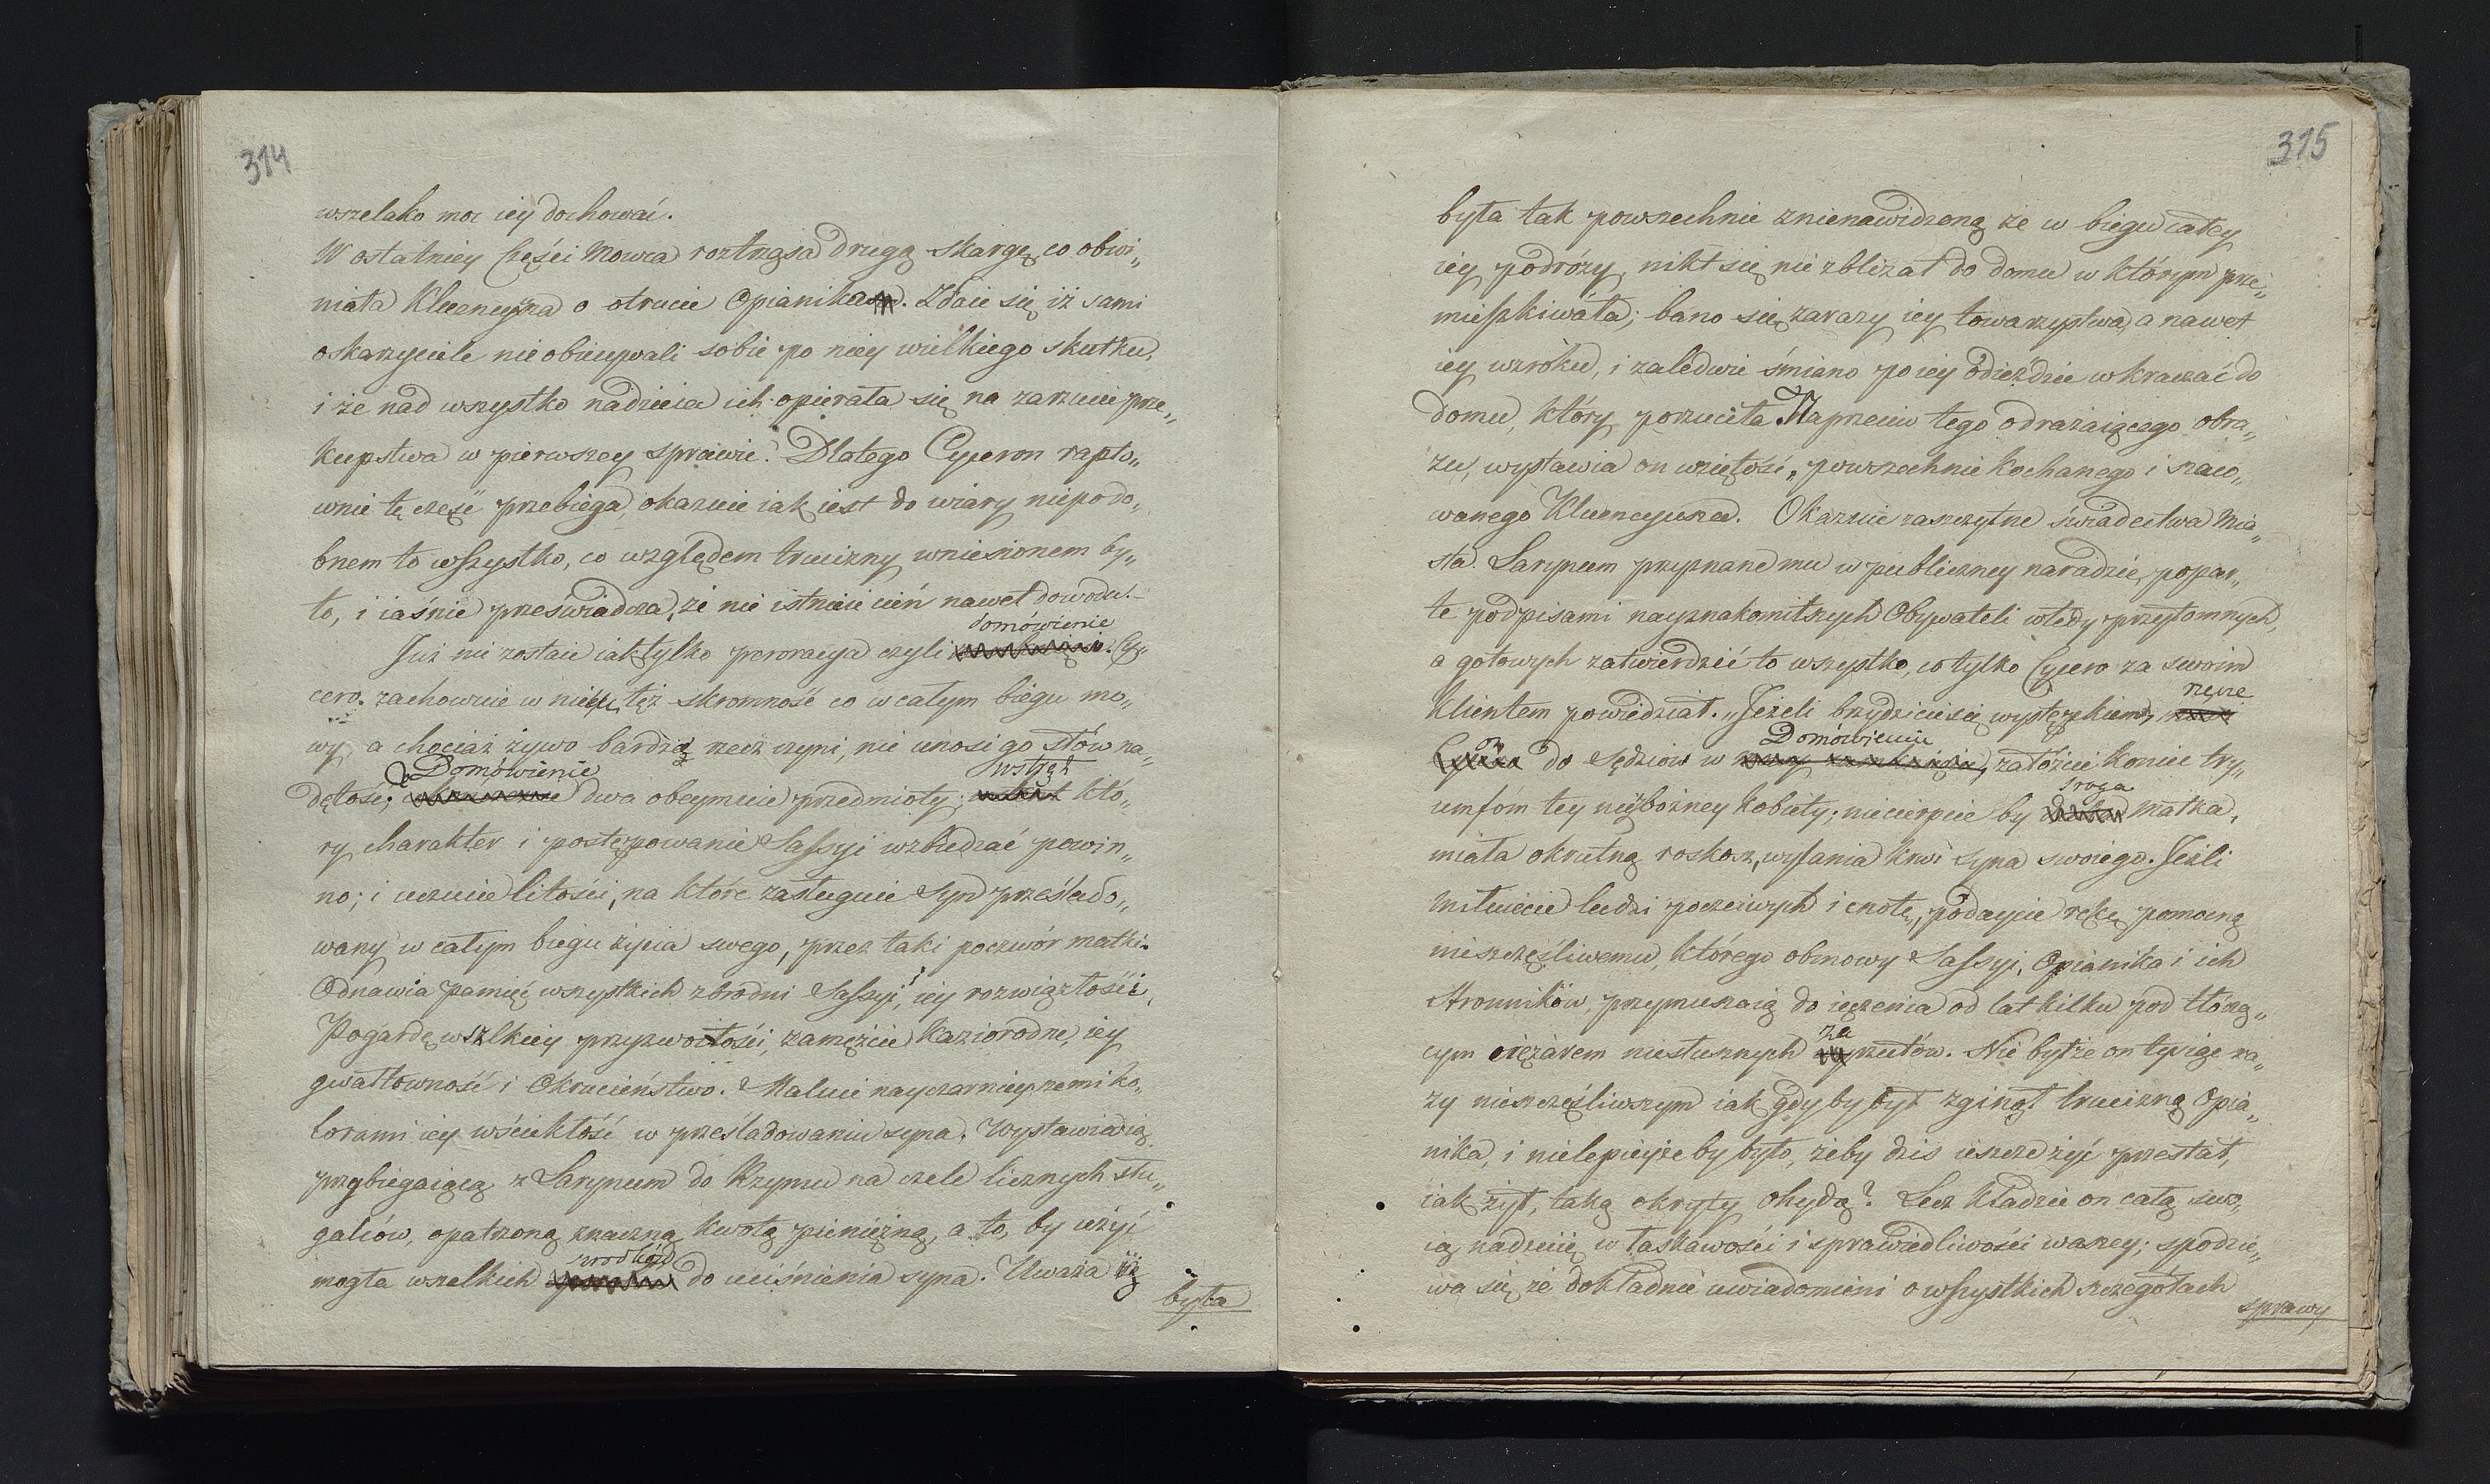 314
wszelako moc iey dochować.
W ostatniey Części Mowca roztrząsa drugą skargę, co obwi„
niała Kluencyna o otrucie Opianika. Zdaie się iż sami
oskarzyciele nie obiecywali sobie po niey wielkiego skutku,
i że nad wszystko nadzieia ich opierała się na zarzucie prze„
kupstwa w pierwszey sprawie. Dlatego Cyceron rapto„
wnie tę część przebiega, okazuie iak iest do wiary niepodo„
bnem to wszystko, co względem trucizny wniesionem by„
ło, i iaśnie przeświadcza, że nie istnieie cień nawet dowodu.
domówienie
Już nie zostaie iak tylko peroracya czyli Cy„
cero. zachowuie w niey też skromność co w całym biegu mo„
wy, a chociaż żywo bardzo rzecz czyni, nie unosi go słów na„
Domówienie wstręt
dętość; dwa obeymuie przedmioty; któ„
ry charakter i postępowanie Sassyi wzbudzać powin„
no; i uczucie litości, na które zasługuie Syn prześlado„
wany w całym biegu życia swego, przez taki poczwór matki.
Odnawia pamięć wszystkich zbrodni Sassyi, iey rozwiązłości,
Pogardę wszlkiey przyzwoitości, zamęźcie Kaziorodne, iey
gwałtowność i Okrucieństwo. Maluie nayczarnieyszemi ko„
lorami iey wściekłość w prześladowaniu syna. Wystawia ią
przybiegaiącą z Larynum do Rzymu na czele licznych słu„
galców, opatrzoną znaczną kwotą pieniężną, a to, by użyć
srodków
mogła wszelkich do uciśnienia syna. Uważa iż
była
315
była tak powszechnie znienawidzoną że w biegu całey
iey podróży, nikt się nie zbliżał do domu w którym prze„
mieszkiwała; bano się zarazy iey towarzystwa, a nawet
iey wzroku, i zaledwie śmiano po iey odieździe wkraczać do
domu, który porzuciła Naprzeciw tego odrażaiącego obra„
zu, wystawia on wziętość, powszechnie kochanego i szaco„
wanego Kluencyusza. Okazuie zaszczytne świadectwa Mia„
sta. Larynum przyznane mu w publiczney naradzie, popar„
te podpisami nayznakomitszych Obywateli wtedy przytomnych,
a gotowych zatwierdzić to wszystko, co tylko Cycero za swoim
rzecze
klientem powiedział. „Jeżeli brzydzicie się występkiem,
on Domówieniu
do Sędziow w założcie koniec try„
sroga
umfom tey niezbożney kobiety; niecierpcie by matka,
miała okrutną roskosz, wyssania krwi syna swoiego. Jeżli
miłuiecie ludzi poczciwych i cnotę, podaycie rękę pomocną
nieszczęśliwemu, którego obmowy Sassyi, Opianika i ich
Stronników, przymuszaią do ięczenia od lat kilku pod tłoczą„
za
cym ciężarem niesłusznych rzutów. Nie byłże on tysiąc ra„
zy nieszczęśliwszym iak gdyby był zginął trucizną Opia„
nika, i nielepieyże by było, żeby dzis ieszcze żyć przestał,
iak żył, taką okryty ohydą? Lecz kładzie on całą swo„
ią nadzieię w łaskawości i sprawiedliwości waszey; spodzie„
wa się że dokładnie uwiadomieni o wszystkich szczegółach
sprawy